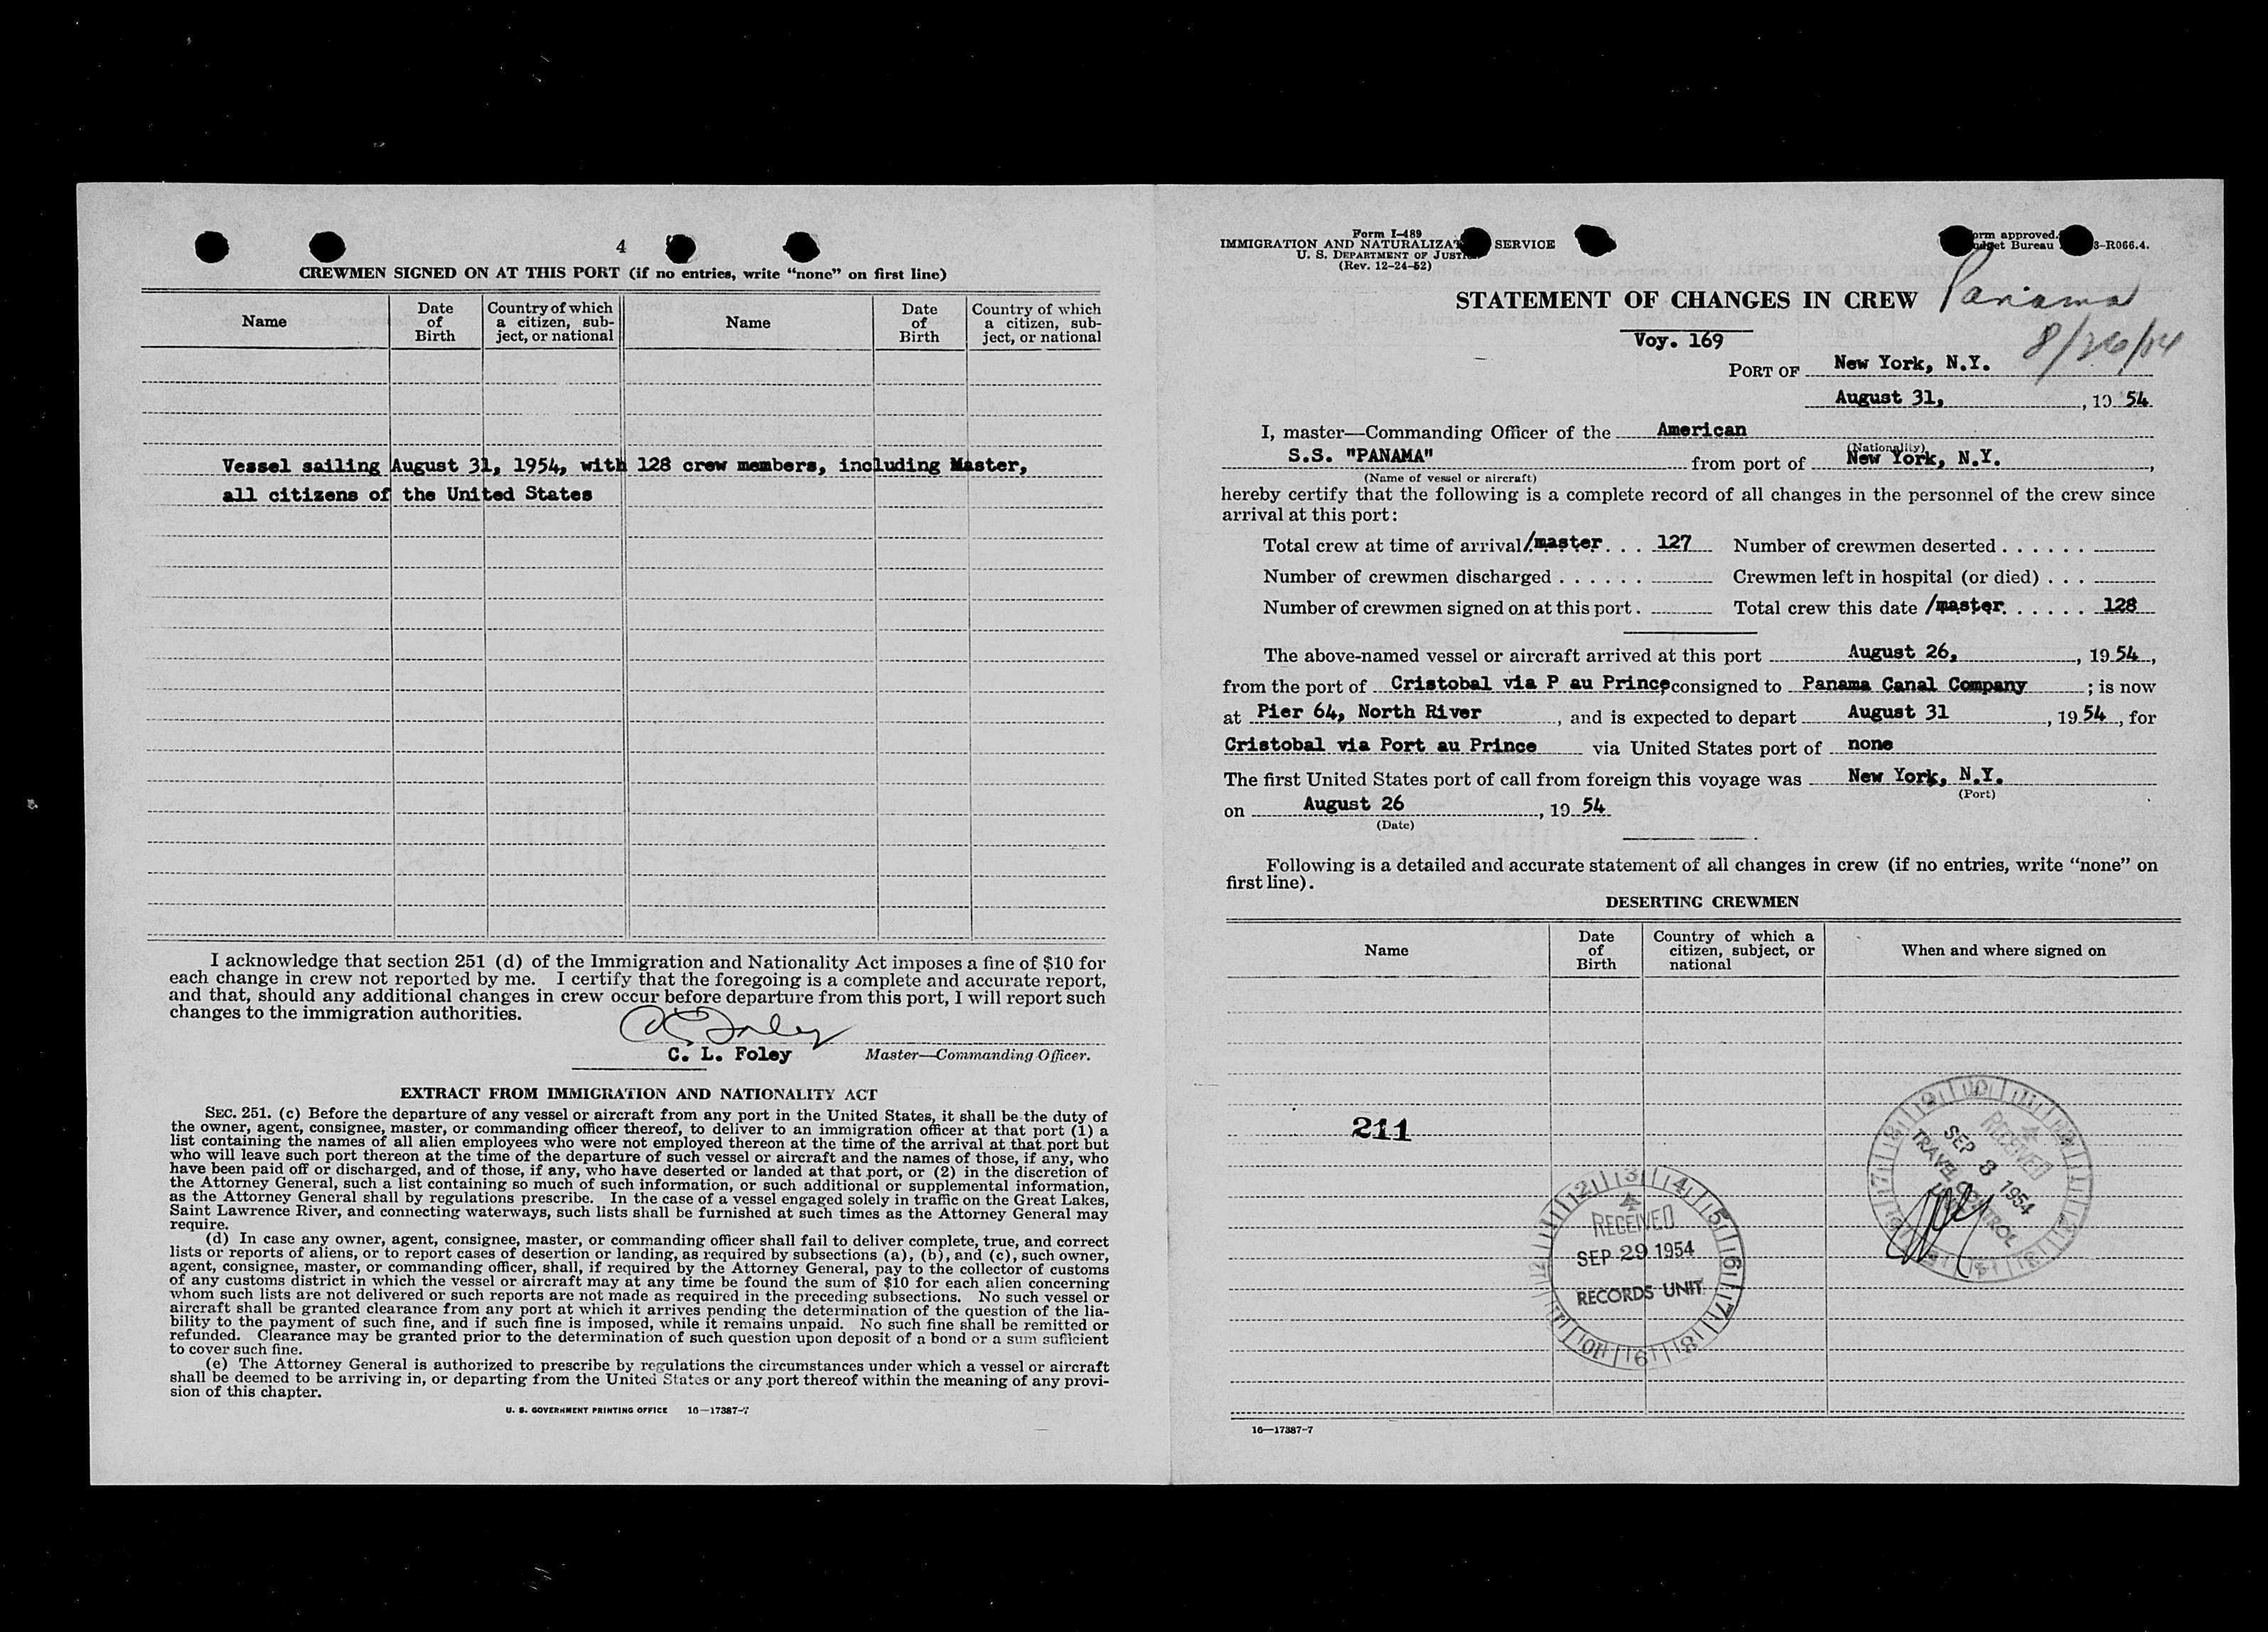 4
CREWMEN SIGNED ON AT THIS PORT (if no entries, write “none” on first line)
Name
Date of Birth
Country of which a citizen, sub-ject, or national
Name
Date of Birth
Country of which a citizen, sub-ject, or national
Vessel sailing August 31, 1954, with 128 crew members, including Master,
all citizens of the United States
I acknowledge that section 251 (d) of the Immigration and Nationality Act imposes a fine of $10 for
each change in crew not reported by me. I certify that the foregoing is a complete and accurate report,
and that, should any additional changes in crew occur before departure from this port, I will report such
changes to the immigration authorities.
C L Foley
C. L. Foley Master—Commanding Officer.
EXTRACT FROM IMMIGRATION AND NATIONALITY ACT
SEC. 251. (c) Before the departure of any vessel or aircraft from any port in the United States, it shall be the duty of
the owner, agent, consignee, master, or commanding officer thereof, to deliver to an immigration officer at that port (1) a
list containing the names of all alien employees who were not employed thereon at the time of the arrival at that port but
who will leave such port thereon at the time of the departure of such vessel or aircraft and the names of those, if any, who
have been paid off or discharged, and of those, if any, who have deserted or landed at that port, or (2) in the discretion of
the Attorney General, such a list containing so much of such information, or such additional or supplemental information,
as the Attorney General shall by regulations prescribe. In the case of a vessel engaged solely in traffic on the Great Lakes,
Saint Lawrence River, and connecting waterways, such lists shall be furnished at such times as the Attorney General may
require.
(d) In case any owner, agent, consignee, master, or commanding officer shall fail to deliver complete, true, and correct
lists or reports of aliens, or to report cases of desertion or landing, as required by subsections (a), (b), and (c), such owner,
agent, consignee, master, or commanding officer, shall, if required by the Attorney General, pay to the collector of customs
of any customs district in which the vessel or aircraft may at any time be found the sum of $10 for each alien concerning
whom such lists are not delivered or such reports are not made as required in the preceding subsections. No such vessel or
aircraft shall be granted clearance from any port at which it arrives pending the determination of the question of the lia-
bility to the payment of such fine, and if such fine is imposed, while it remains unpaid. No such fine shall be remitted or
refunded. Clearance may be granted prior to the determination of such question upon deposit of a bond or a sum sufficient
to cover such fine.
(e) The Attorney General is authorized to prescribe by regulations the circumstances under which a vessel or aircraft
shall be deemed to be arriving in, or departing from the United States or any port thereof within the meaning of any provi-
sion of this chapter.
U. S. GOVERNMENT PRINTING OFFICE 16—17387-7
Form I-489
IMMIGRATION AND SERVICE
U. S. DEPARTMENT OF
(Rev. 12-24-52)
approved.
Bureau 3-R066.4.
STATEMENT OF CHANGES IN CREW
Panama
Voy. 169
8/26/54
PORT OF New York, N.Y.
August 31, , 19 54
I, master—Commanding Officer of the American
(Nationality)
S.S. "PANAMA" from port of New York, N.Y. ,
(Name of vessel or aircraft)
hereby certify that the following is a complete record of all changes in the personnel of the crew since
arrival at this port:
Total crew at time of arrival/master . . . 127 Number of crewmen deserted . . . . . .
Number of crewmen discharged . . . . . . Crewmen left in hospital (or died) . . .
Number of crewmen signed on at this port . Total crew this date /master . . . . . . 128
The above-named vessel or aircraft arrived at this port August 26, , 19 54 ,
from the port of Cristobal via P au Prince consigned to Panama Canal Company ; is now
at Pier 64, North River , and is expected to depart August 31 , 19 54 , for
Cristobal via Port au Prince via United States port of none
The first United States port of call from foreign this voyage was New York, N.Y.
(Port)
on August 26 , 19 54
(Date)
Following is a detailed and accurate statement of all changes in crew (if no entries, write “none” on
first line).
DESERTING CREWMEN
Name
Date of Birth
Country of which a citizen, subject, or national
When and where signed on
211
RECEIVED
SEP 3 1954
TRAVEL CONTROL
RECEIVED
SEP 29 1954
RECORDS UNIT
16—17387-7